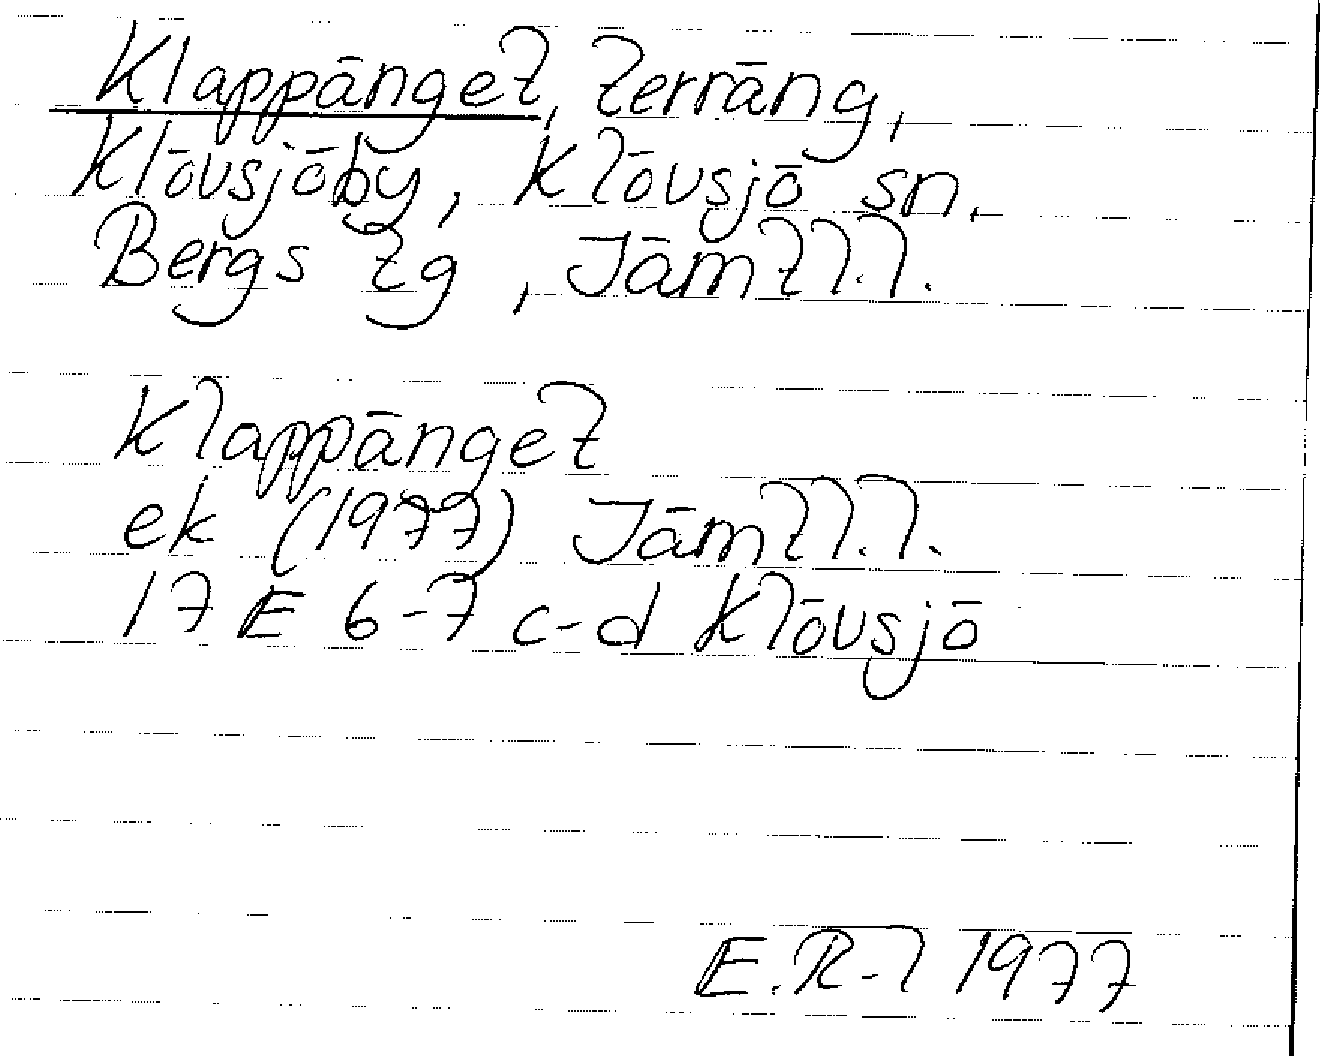 Klappänget, terräng,
Klövsjöby, Klövsjö sn,
Bergs tg, Jämtl.l.
Klappänget
ek (1977) Jämtl.l.
17 E 6-7 c-d Klövsjö
E.R-l 1977